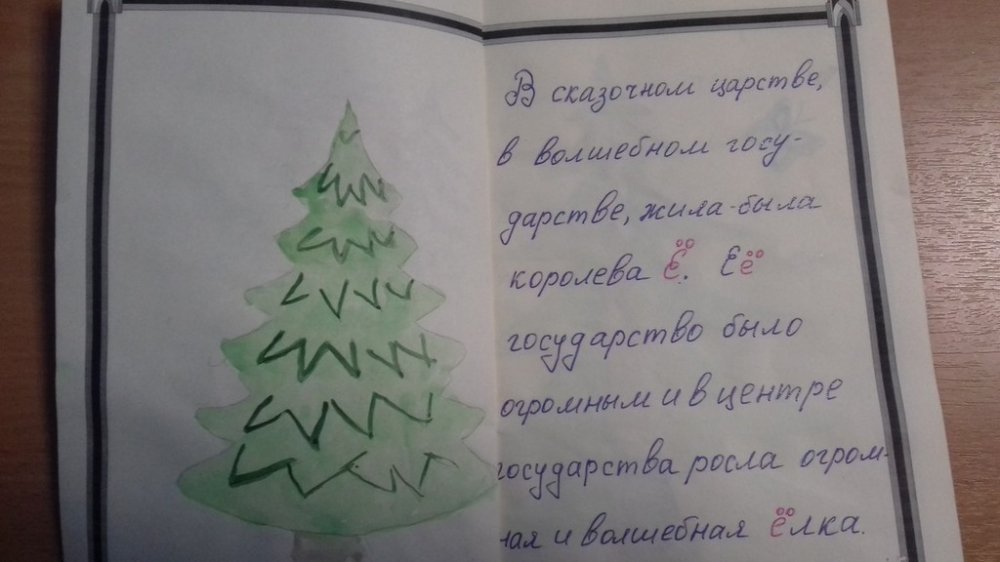 В сказочном царстве,
в волшебном госу-
дарстве, жила-была
королева Ё. Её
государство было
огромным и в центре
государства росла огром-
ная и волшебная ёлка.